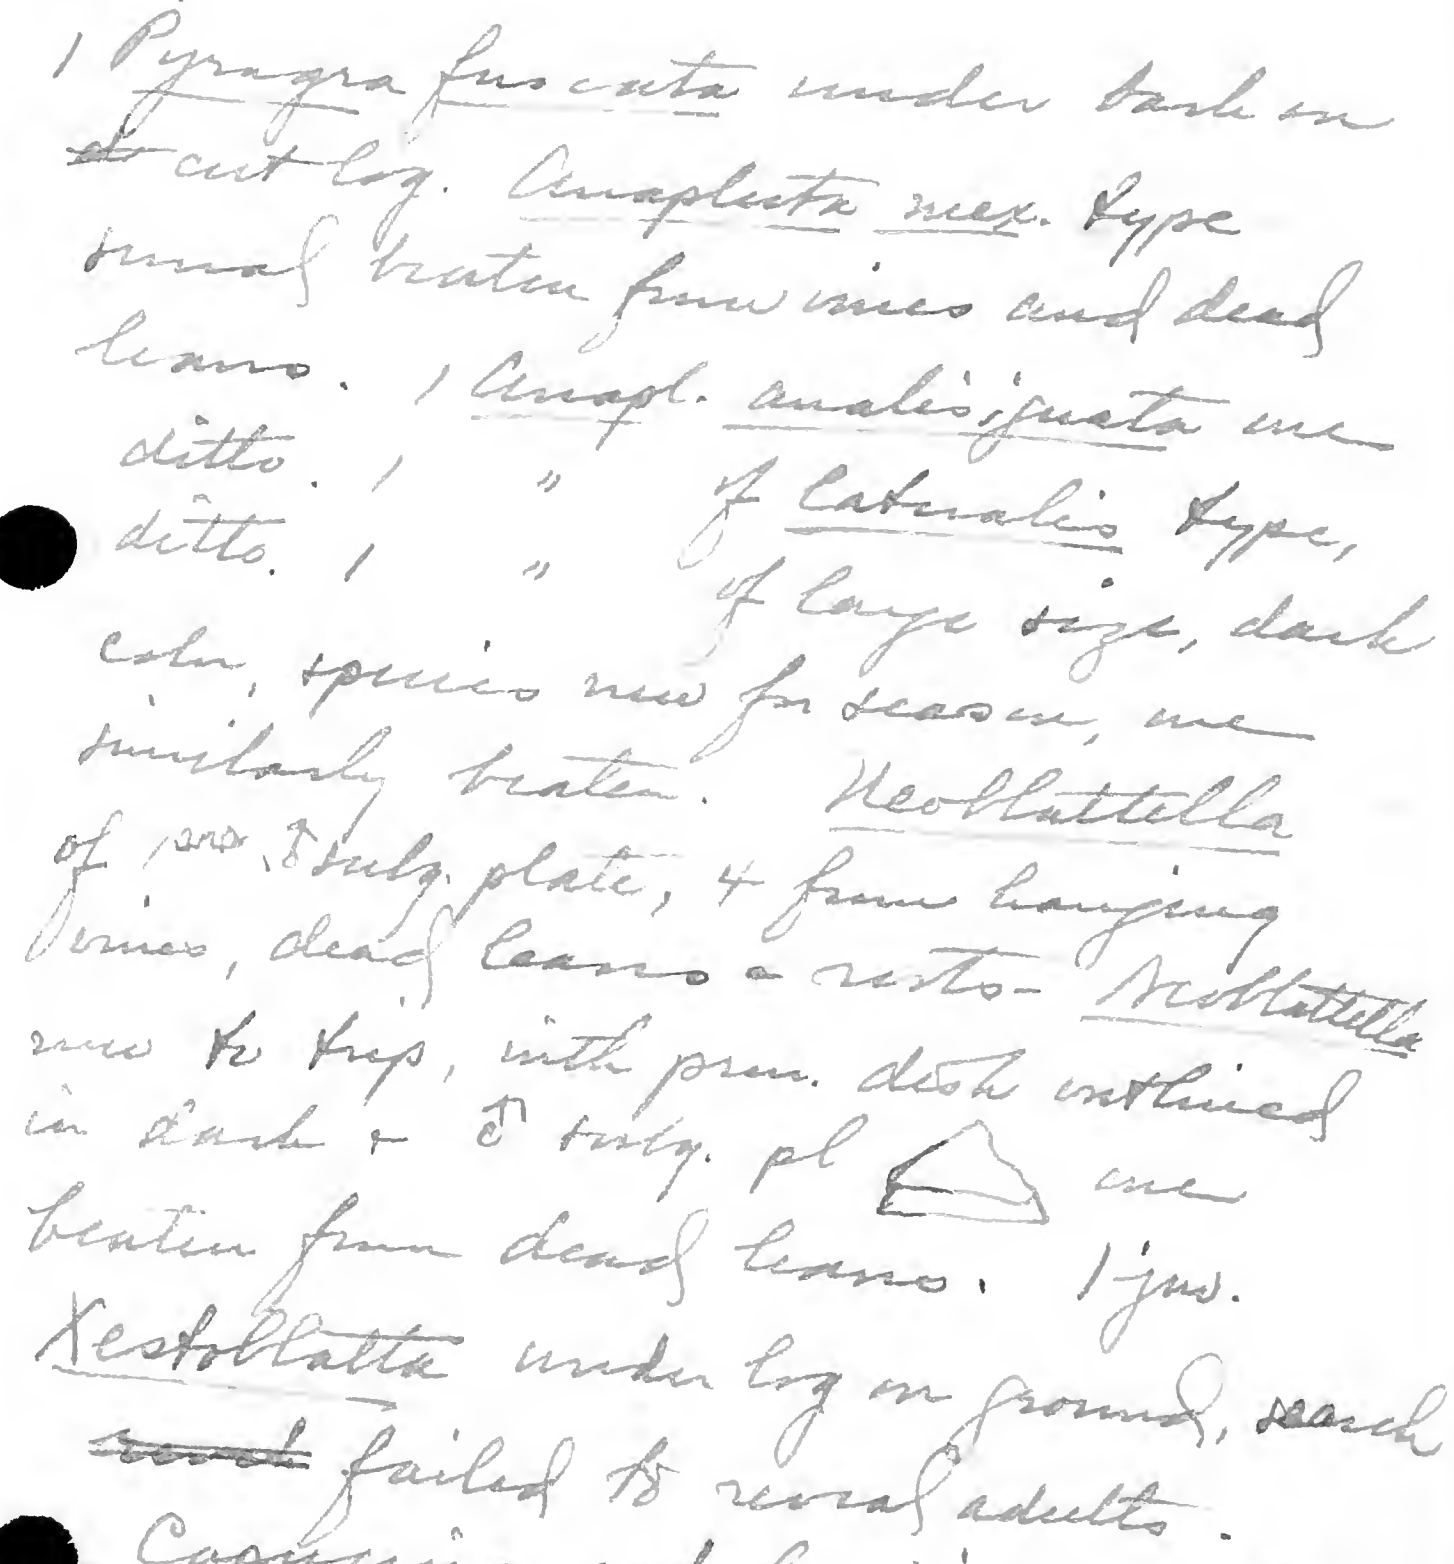 1 Pyragra fuscata under bark on
cut log. Anaplecta mex. type
several beaten from vines and dead
leaves. 1 Anapl. analisignata one
ditto. 1 " of lateralis type,
ditto. 1 " of large size, dark
color, species new for season, one
similarly beaten. Neoblattella
of ♂ subg. plate, 4 from hanging
vines, dead leaves - Neoblattella
new to trip, with pron. disk outlined
in dark + ♂ subg. pl one
beaten from dead leaves. 1 juv.
Xestoblatta under log on ground, search
failed to reveal adults.